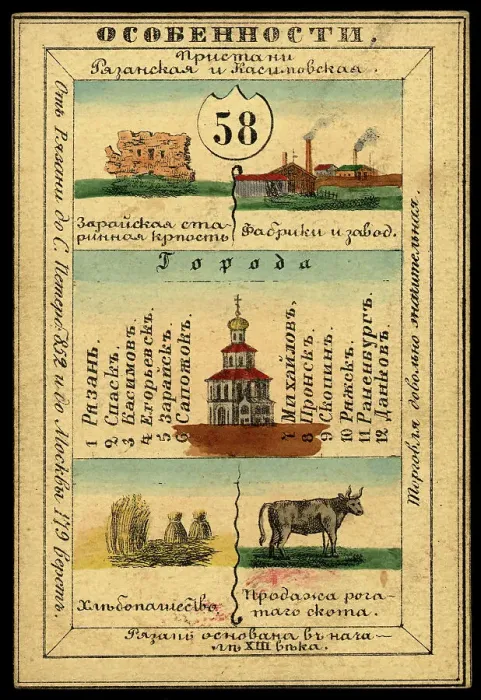 ОСОБЕННОСТИ.
Пристани
Рязанская и Касимовская.
Отъ Рязани до С. Петерб. 852 и до Москвы 179 верстъ.
58
Зарайская ста-
ринная крпость
Фабрики и завод.
Города
1 Рязань.
2 Спаскъ.
3 Касимовъ.
4 Егорьевскъ.
5 Зарайскъ.
6 Сапожокъ.
7 Михайловъ,
8 Пронскъ.
9 Скопинъ.
10 Ряжскъ.
11 Раненбургъ.
12 Данковъ.
Торговля довольно значительная.
Хлѣбопашество
Продажа рога-
таго скота.
Рязань основана въ нача-
лѣ XIII вѣка.